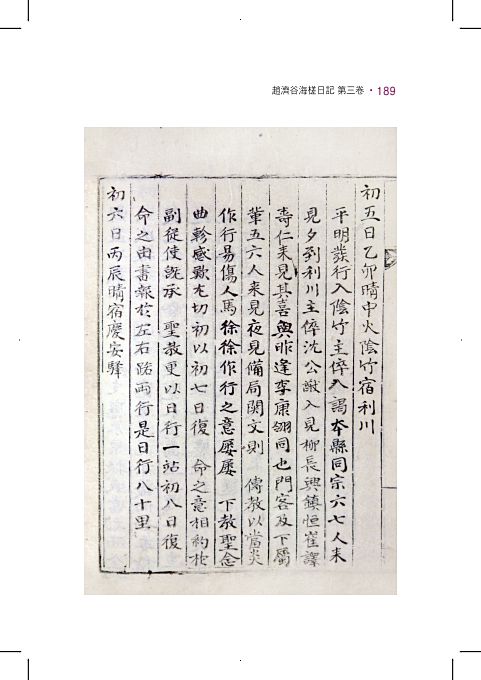 趙濟谷海槎日記 第三卷 · 189
初五日乙卯晴中火陰竹宿利川
平明發行入陰竹主倅入謁本縣同宗六七人來
見夕到利川主倅沈公瀫入見柳長興鎭恒崔譯
壽仁來見其喜與昨逢李康翎同也門客及下屬
輩五六人來見夜見備局關文則 傳敎以當炎
作行易傷人馬徐徐作行之意屢屢 下敎聖念
曲軫感歎尤切初以初七日復 命之意相約於
副從使旣承 聖敎更以日行一站初八日復
命之由書報於左右路兩行是日行八十里
初六日丙辰晴宿慶安驛